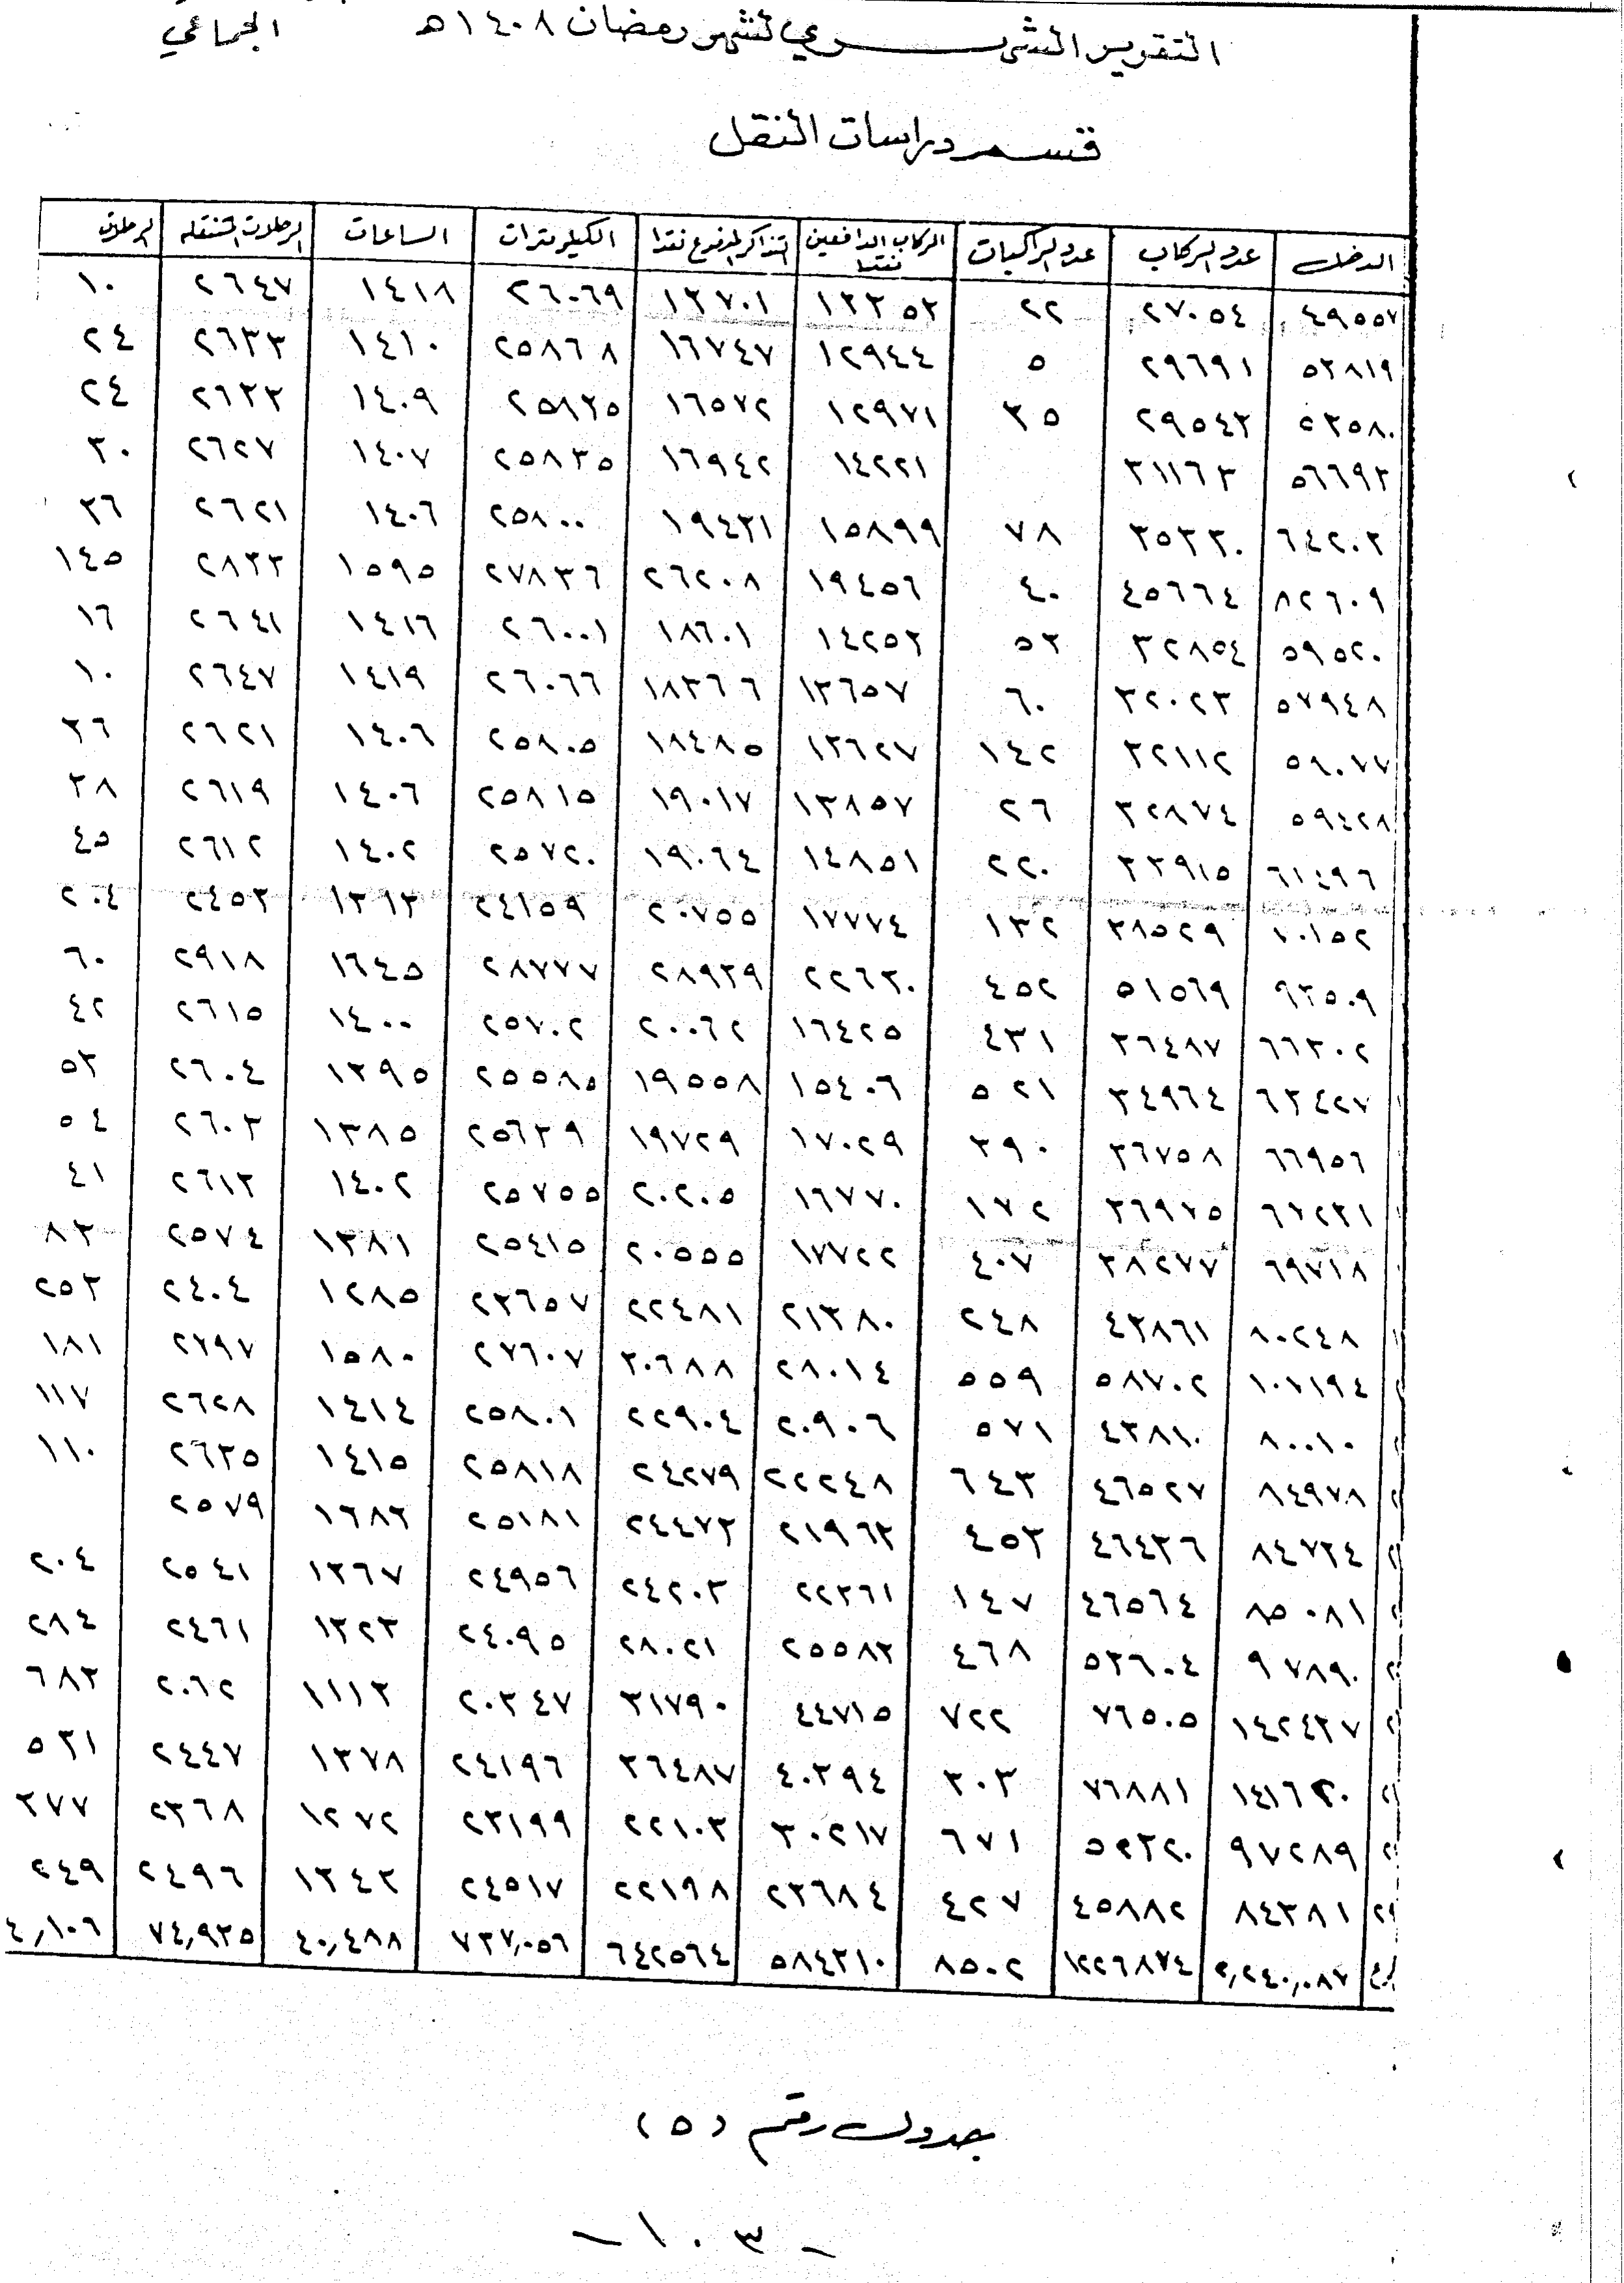 التقرير الشهري لشهر رمضان ١٤٠٨هـ الجماعي
قسم دراسات النقل
الدخل عدد الركاب عدد الراكبات الركاب الدافعين نقدا التذاكر المدفوع نقدا الكيلومترات الساعات الرحلات المنتقله الرحلات
٤٩٥٥٧ ٢٧٠٥٤ ٢٢ ١٣٣٥٣ ١٣٧٠١ ٢٦٠٦٩ ١٤١٨ ٢٦٤٧ ١٠
٥٣٨١٩ ٢٩٦٩١ ٥ ١٢٩٤٤ ١٦٧٤٧ ٢٥٨٦٨ ١٤١٠ ٢٦٣٣ ٢٤
٥٣٥٨٠ ٢٩٥٤٣ ٣٥ ١٢٩٧١ ١٦٥٧٢ ٢٥٨٣٥ ١٤٠٩ ٢٦٣٣ ٢٤
٥٦٦٩٣ ٣١١٦٣ ١٤٢٢١ ١٦٩٤٢ ٢٥٨٣٥ ١٤٠٧ ٢٦٢٧ ٣٠
٦٤٢٠٣ ٣٥٣٣٠ ٧٨ ١٥٨٩٩ ١٩٤٣١ ٢٥٨٠٠ ١٤٠٦ ٢٦٢١ ٣٦
٨٢٦٠٩ ٤٥٦٦٤ ٤٠ ١٩٤٥٦ ٢٦٢٠٨ ٢٧٨٣٦ ١٥٩٥ ٢٨٣٣ ١٤٥
٥٩٥٢٠ ٣٢٨٥٤ ٥٣ ١٤٢٥٣ ١٨٦٠١ ٢٦٠٠١ ١٤١٦ ٢٦٤١ ١٦
٥٧٩٤٨ ٣٢٠٢٣ ٦٠ ١٣٦٥٧ ١٨٣٦٦ ٢٦٠٦٦ ١٤١٩ ٢٦٤٧ ١٠
٥٨٠٧٧ ٣٢١١٢ ١٤٢ ١٣٦٢٧ ١٨٤٨٥ ٢٥٨٠٥ ١٤٠٦ ٢٦٢١ ٣٦
٥٩٤٢٨ ٣٢٨٧٤ ٢٦ ١٣٨٥٧ ١٩٠١٧ ٢٥٨١٥ ١٤٠٦ ٢٦١٩ ٣٨
٦١٤٩٦ ٣٣٩١٥ ٢٢٠ ١٤٨٥١ ١٩٠٦٤ ٢٥٧٢٠ ١٤٠٢ ٢٦١٢ ٤٥
٣٨٥٢٩ ١٣٢ ١٧٧٧٤ ٢٠٧٥٥ ٢٤١٥٩ ١٣١٣ ٢٤٥٣ ٢٠٤
٩٣٥٠٩ ٥١٥٦٩ ٤٥٢ ٢٢٦٣٠ ٢٨٩٣٩ ٢٨٧٧٧ ١٦٤٥ ٢٩١٨ ٦٠
٦٦٣٠٢ ٣٦٤٨٧ ٤٣١ ١٦٤٢٥ ٢٠٠٦٢ ٢٥٧٠٢ ١٤٠٠ ٢٦١٥ ٤٢
٦٣٤٢٧ ٣٤٩٦٤ ٥٢١ ١٥٤٠٦ ١٩٥٥٨ ٢٥٥٨٥ ١٣٩٥ ٢٦٠٤ ٥٣
٦٦٩٥٦ ٣٦٧٥٨ ٣٩٠ ١٧٠٢٩ ١٩٧٢٩ ٢٥٦٣٩ ١٣٨٥ ٢٦٠٣ ٥٤
٦٧٢٣١ ٣٦٩٧٥ ١٧٢ ١٦٧٧٠ ٢٠٢٠٥ ٢٥٧٥٥ ١٤٠٢ ٢٦١٣ ٤١
٦٩٧١٨ ٣٨٢٧٧ ٤٠٧ ١٧٧٢٢ ٢٠٥٥٥ ٢٥٤١٥ ١٣٨١ ٢٥٧٤ ٨٣
٨٠٢٤٨ ٤٣٨٦١ ٢٤٨ ٢١٣٨٠ ٢٢٤٨١ ٢٣٦٥٧ ١٢٨٥ ٢٤٠٤ ٢٥٣
١٠٧١٩٤ ٥٨٧٠٢ ٥٥٩ ٢٨٠١٤ ٣٠٦٨٨ ٢٧٦٠٧ ١٥٨٠ ٢٧٩٧ ١٨١
٨٠٠١٠ ٤٣٨١٠ ٥٧١ ٢٠٩٠٦ ٢٢٩٠٤ ٢٥٨٠١ ١٤١٤ ٢٦٢٨ ١١٧
٨٤٩٧٨ ٤٦٥٢٧ ٦٤٣ ٢٢٢٤٨ ٢٤٢٧٩ ٢٥٨١٨ ١٤١٥ ٢٦٣٥ ١١٠
٨٤٧٣٤ ٤٦٤٣٦ ٤٥٣ ٢١٩٦٣ ٢٤٤٧٣ ٢٥١٨١ ١٦٨٣ ٢٥٧٩
٨٥٠٨١ ٤٦٥٦٤ ١٤٧ ٢٢٣٦١ ٢٤٢٠٣ ٢٤٩٥٦ ١٣٦٧ ٢٥٤١ ٢٠٤
٩٧٨٩٠ ٥٣٦٠٤ ٤٦٨ ٢٥٥٨٣ ٢٨٠٢١ ٢٤٠٩٥ ١٣٢٣ ٢٤٦١ ٢٨٤
١٤٢٤٣٧ ٧٦٥٠٥ ٧٢٢ ٤٤٧١٥ ٣١٧٩٠ ٢٠٣٤٧ ١١١٣ ٢٠٦٢ ٦٨٣
١٤١٦٢٠ ٧٦٨٨١ ٣٠٣ ٤٠٣٩٤ ٣٦٤٨٧ ٢٤١٩٦ ١٣٧٨ ٢٤٤٧ ٥٣١
٩٧٢٨٩ ٥٢٣٢٠ ٦٧١ ٣٠٢١٧ ٢٢١٠٣ ٢٣١٩٩ ١٢٧٢ ٢٣٦٨ ٣٧٧
٨٤٣٨١ ٤٥٨٨٢ ٤٢٧ ٢٣٦٨٤ ٢٢١٩٨ ٢٤٥١٧ ١٣٤٣ ٢٤٩٦ ٢٤٩
٢,٢٤٠,٠٨٧ ١٢٢٦٨٧٤ ٨٥٠٢ ٥٨٤٣١٠ ٦٤٢٥٦٤ ٧٣٧,٠٥٦ ٤٠,٤٨٨ ٧٤,٩٣٥ ٤,١٠٦
جدول رقم (٥)
- ١٠٣ -